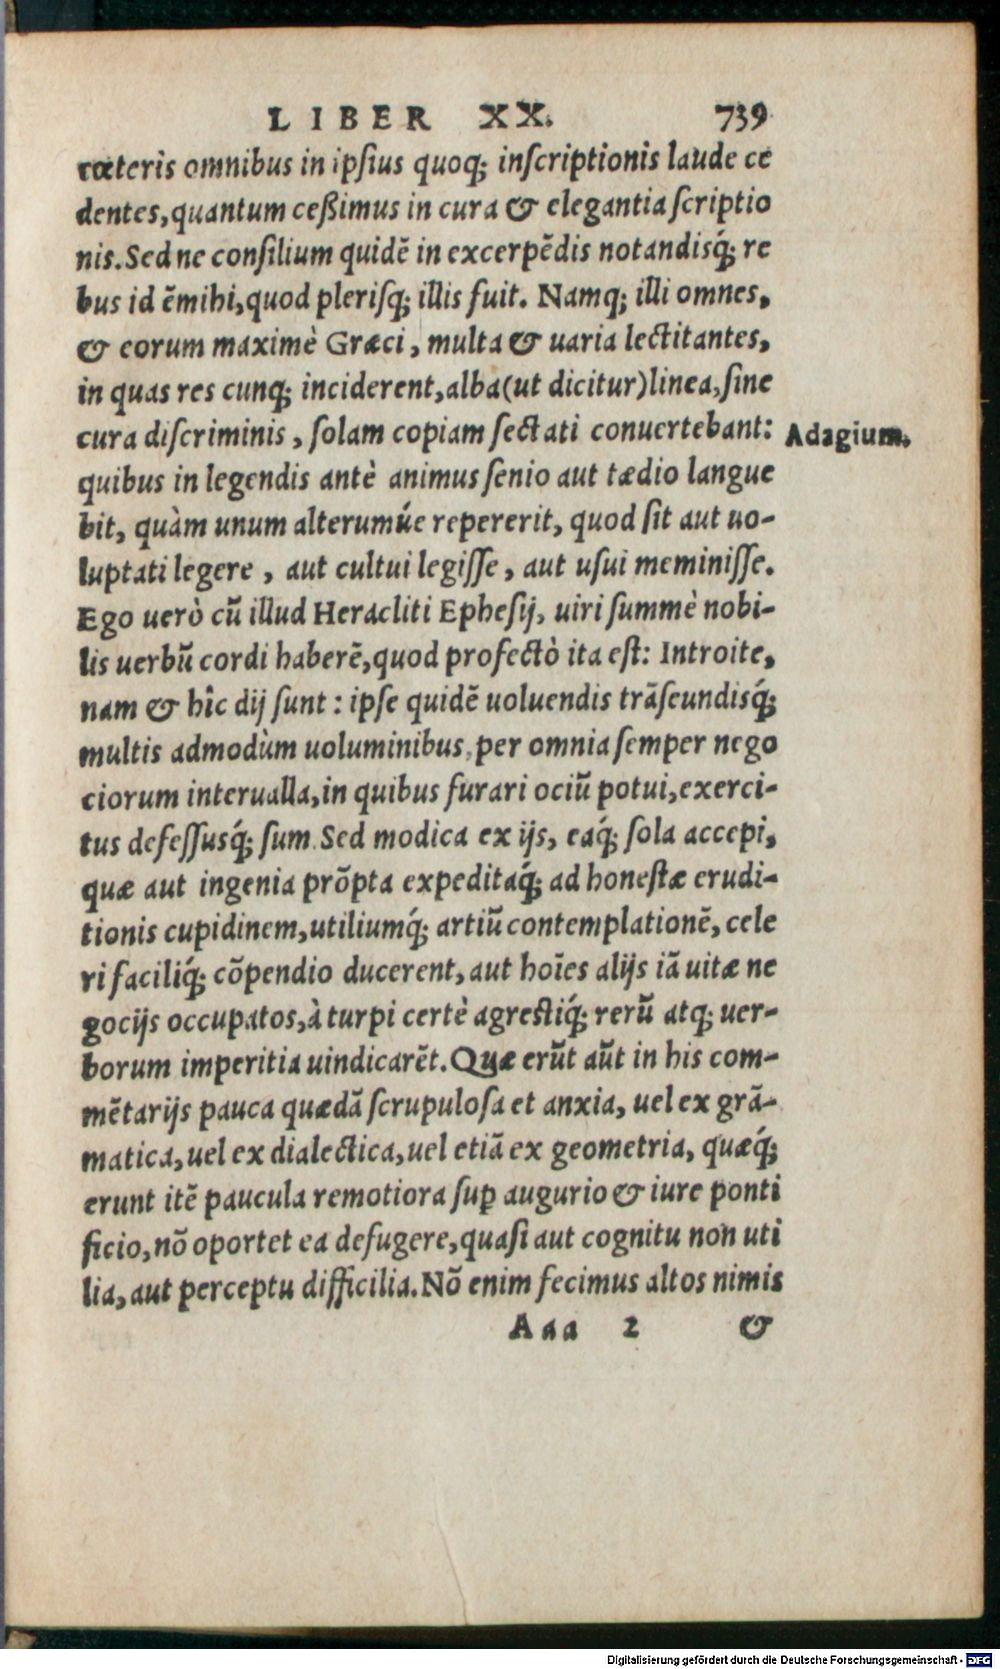 LIBER XX. 739
cœteris omnibus in ipsius quoq; inſcriptionis laude ce
dentes, quantum ceßimus in cura & elegantia ſcriptio
nis. Sed ne conſilium quidē in excerpēdis notandisq́; re
bus id ē mihi, quod pleriſq; illis fuit. Namq; illi omnes,
& eorum maximè Græci, multa & uaria lectitantes,
in quas res cunq; inciderent, alba (ut dicitur) linea, ſine
cura diſcriminis, ſolam copiam ſectati conuertebant:
Adagium.
quibus in legendis antè animus ſenio aut tædio langue
bit, quàm unum alterumúe repererit, quod ſit aut uo-
luptati legere, aut cultui legiſſe, aut uſui meminiſſe.
Ego uerò cū illud Heracliti Epheſij, uiri ſummè nobi-
lis uerbū cordi haberē, quod profectò ita eſt: Introite,
nam & hîc dij ſunt: ipſe quidē uoluendis trāſeundisq́;
multis admodùm uoluminibus, per omnia ſemper nego
ciorum interualla, in quibus furari ociū potui, exerci-
tus defeſſusq́; ſum. Sed modica ex ijs, eaq́; ſola accepi,
quæ aut ingenia prōpta expeditaq́; ad honeſtæ erudi-
tionis cupidinem, utiliumq́; artiū contemplationē, cele
ri faciliq́; cōpendio ducerent, aut hoīes alijs iā uitæ ne
gocijs occupatos, à turpi certè agreſtiq́; rerū atq; uer-
borum imperitia uindicarēt. Quæ erūt aūt in his com-
mētarijs pauca quædā ſcrupuloſa et anxia, uel ex grā-
matica, uel ex dialectica, uel etiā ex geometria, quæq́;
erunt itē paucula remotiora suꝑ augurio & iure ponti
ficio, nō oportet ea defugere, quaſi aut cognitu non uti
lia, aut perceptu difficilia. Nō enim fecimus altos nimis
Aaa 2 &
Digitalisierung gefördert durch die Deutsche Forschungsgemeinschaft - DFG